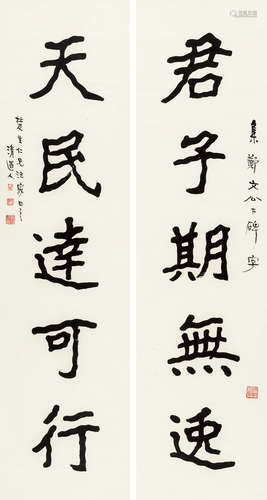 集鄭文公下碑字
君子期無逸
天民達可行
生仁兄法家
清道人